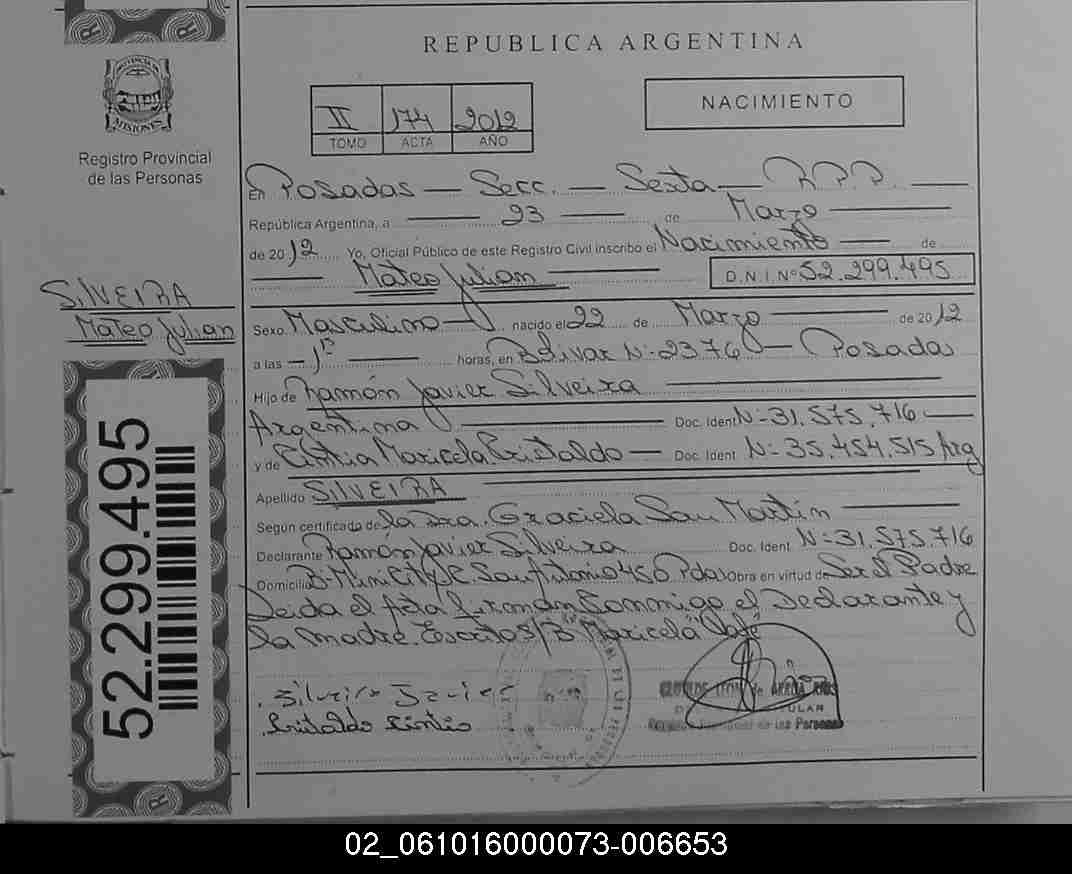 REPUBLICA ARGENTINA
PROVINCIA DE MISIONES
Registro Provincial
de las Personas
II 174 2012
TOMO ACTA AÑO
NACIMIENTO
En Posadas — Secc. — Sexta — R.P.P. —
República Argentina, a — 23 — de Marzo —
de 2012 Yo, Oficial Público de este Registro Civil inscribo el Nacimiento — de
— Mateo Julian — D.N.I. Nº 52.299.495
SILVEIRA
Mateo Julian
52.299.495
Sexo Masculino — nacido el 22 de Marzo — de 2012
a las — 1 13 — horas, en Bolivar Nº 2376 — Posadas
Hijo de Ramón Javier Silveira —
Argentina — Doc. Ident Nº 31.575.716 —
y de Cintia Maricela Cristaldo — Doc. Ident Nº 35.454.515 Arg
Apellido SILVEIRA —
Según certificado de la Dra. Graciela San Martín —
Declarante Ramón Javier Silveira Doc. Ident Nº 31.575.716
Domicilio Bº Mini City C. San Antonio 450 Pdas Obra en virtud de Ser el Padre
Leida el Acta firman Conmigo el Declarante y
la madre. Escrito S/B "Maricela" Vale
Silveira Javier
Cristaldo Cintia
TITULAR
de las Personas
02_061016000073-006653